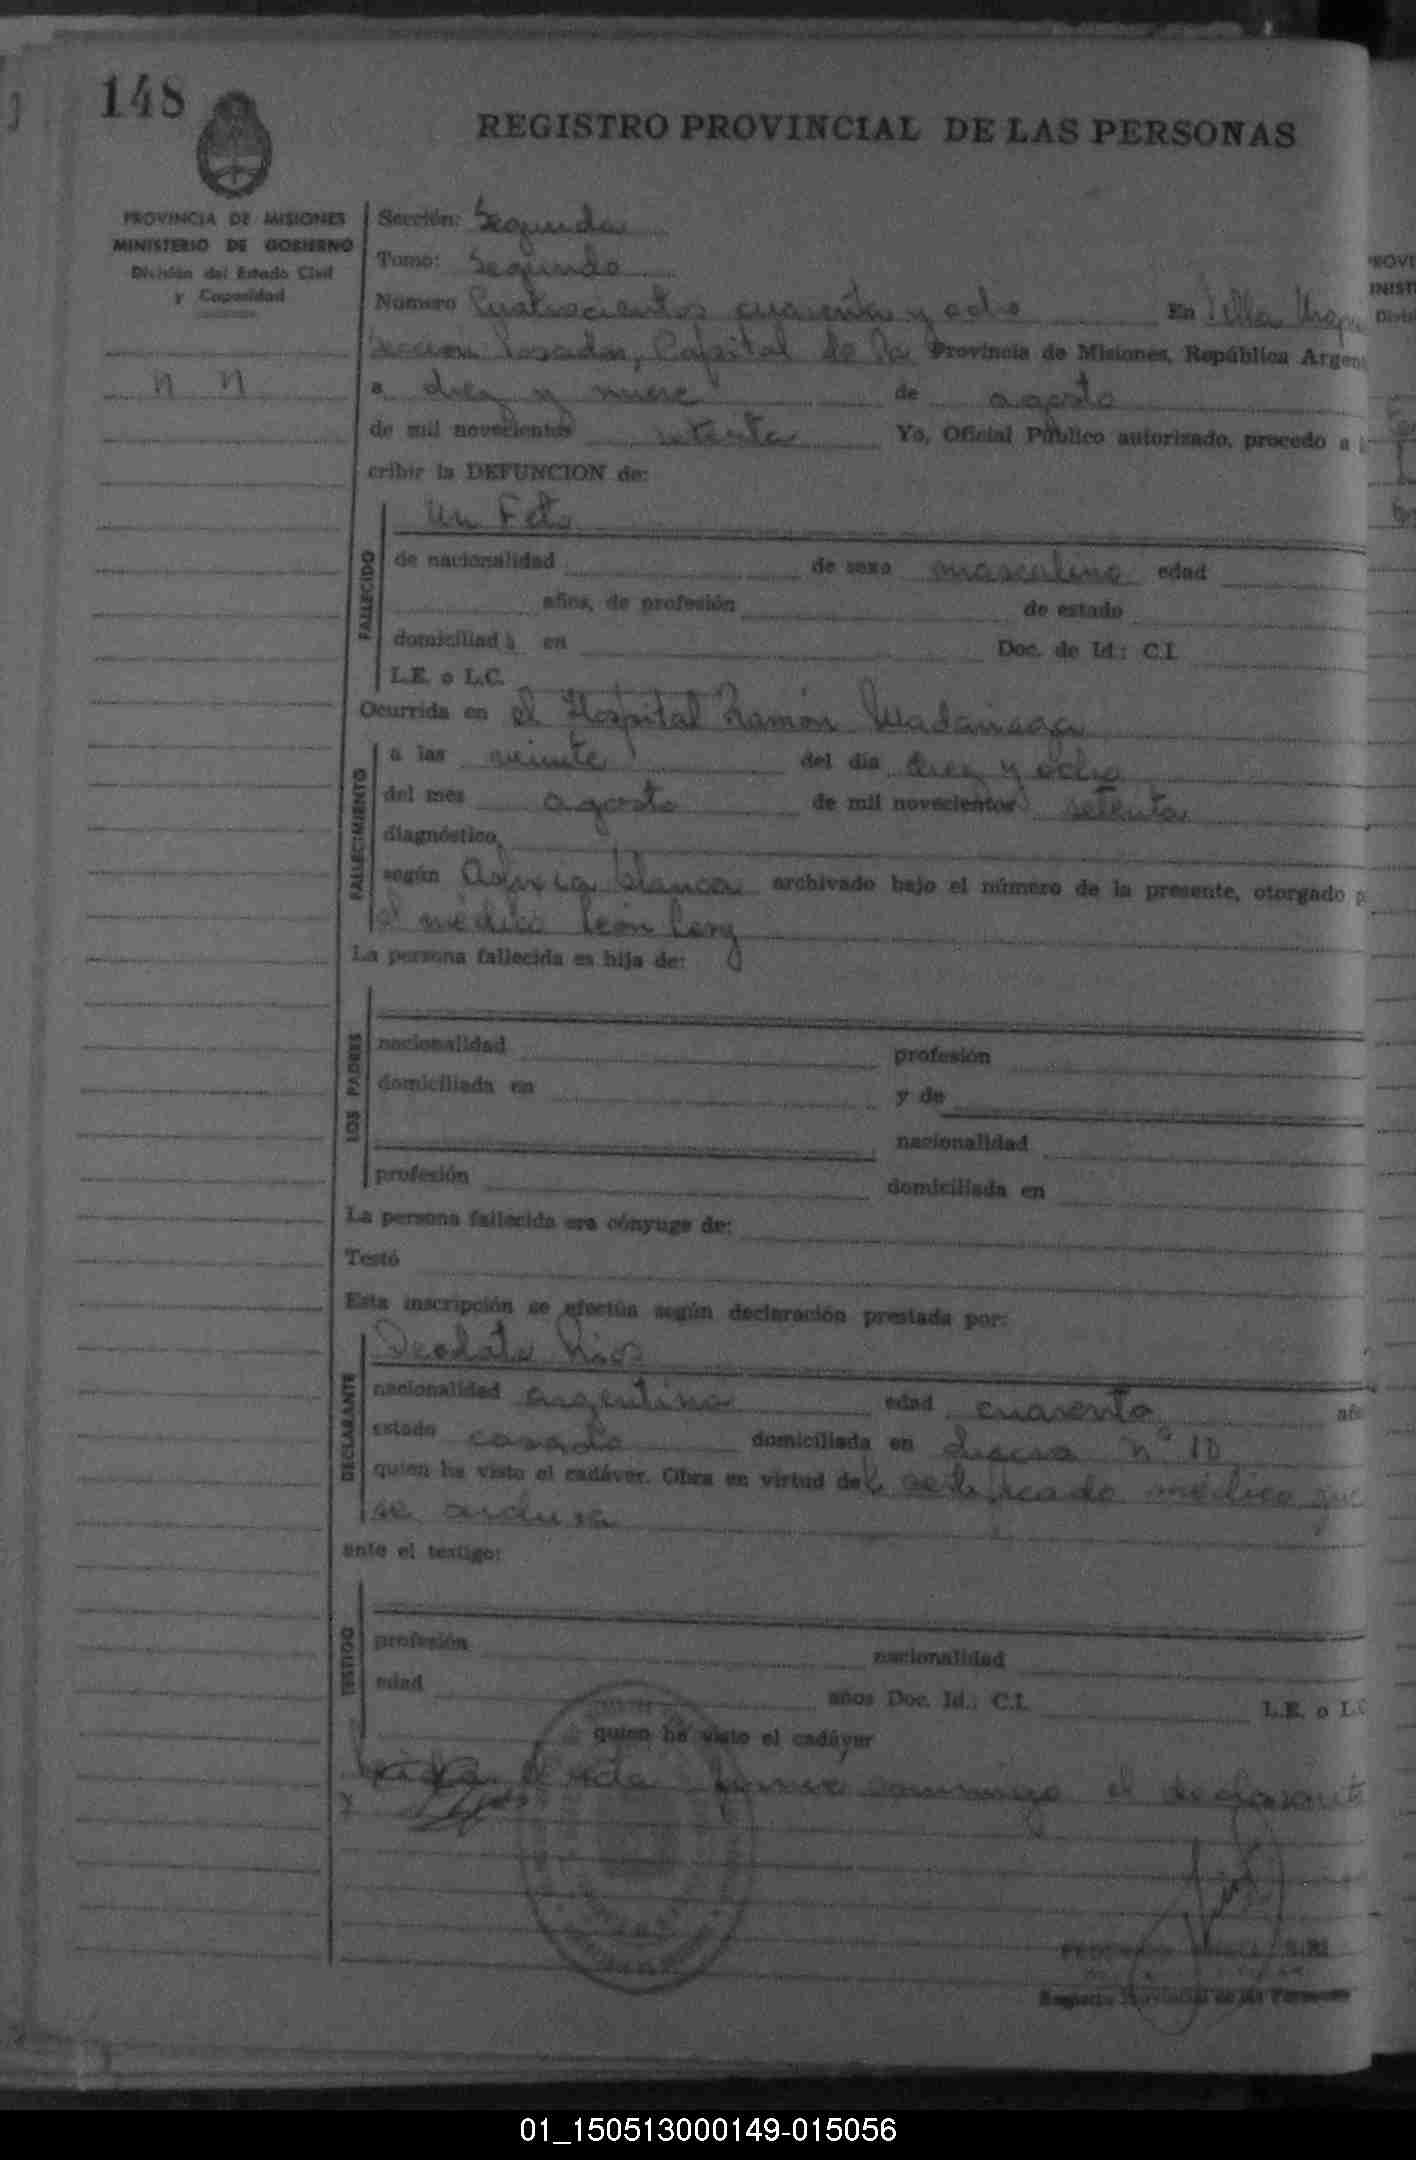 148
REGISTRO PROVINCIAL DE LAS PERSONAS
PROVINCIA DE MISIONES
MINISTERIO DE GOBIERNO
División del Estado Civil
y Capacidad
n n
Sección: Segunda
Tomo: Segundo
Número Cuatrocientos cuarenta y ocho En Villa Urqu
Sección Posadas, Capital de la Provincia de Misiones, República Argen
a diez y nueve de agosto
de mil novecientos setenta Yo, Oficial Público autorizado, procedo a
cribir la DEFUNCION de:
FALLECIDO
Un Feto
de nacionalidad de sexo masculino edad
años, de profesión de estado
domiciliad en Doc. de Id.: C.I.
L.E. o L.C.
Ocurrida en el Hospital Ramón Madariaga
FALLECIMIENTO
a las veinte del día diez y ocho
del mes agosto de mil novecientos setenta
diagnóstico
según Asfixia blanca archivado bajo el número de la presente, otorgado p
el médico León
La persona fallecida es hija de:
LOS PADRES
nacionalidad profesión
domiciliada en y de
nacionalidad
profesión domiciliada en
La persona fallecida era cónyuge de:
Testó
Esta inscripción se efectúa según declaración prestada por:
DECLARANTE
Deodato Rios
nacionalidad argentino edad cuarenta añ
estado casado domiciliada en chacra nº 10
quien ha visto el cadáver. Obra en virtud del certificado médico que
se
ante el testigo:
TESTIGO
profesión nacionalidad
edad años Doc. Id.: C.I. L.E. o L.C
quien ha visto el cadáver
Leída el acta firma conmigo el declarante
Registro Provincial de las Personas
PROVI
INIST
Divis
01_150513000149-015056